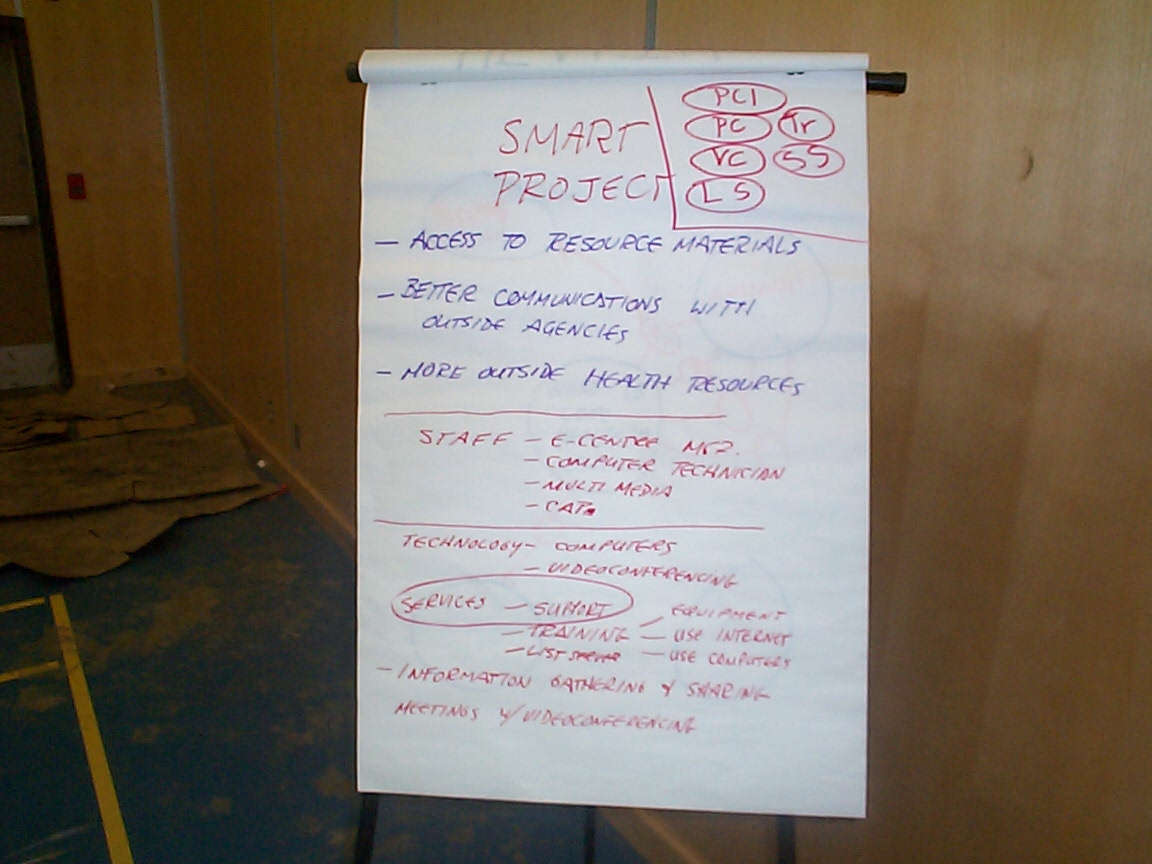 SMART
PROJECT
PCI
PC Tr
VC SS
LS
— ACCESS TO RESOURCE MATERIALS
— BETTER COMMUNICATIONS WITH
OUTSIDE AGENCIES
— MORE OUTSIDE HEALTH RESOURCES
STAFF — E-CENTRE MGR.
— COMPUTER TECHNICIAN
— MULTI MEDIA
— CAP
TECHNOLOGY — COMPUTERS
— VIDEOCONFERENCING
SERVICES — SUPPORT
EQUIPMENT
— TRAINING — USE INTERNET
— LIST SERVER — USE COMPUTERS
— INFORMATION GATHERING & SHARING
MEETINGS W/ VIDEOCONFERENCING